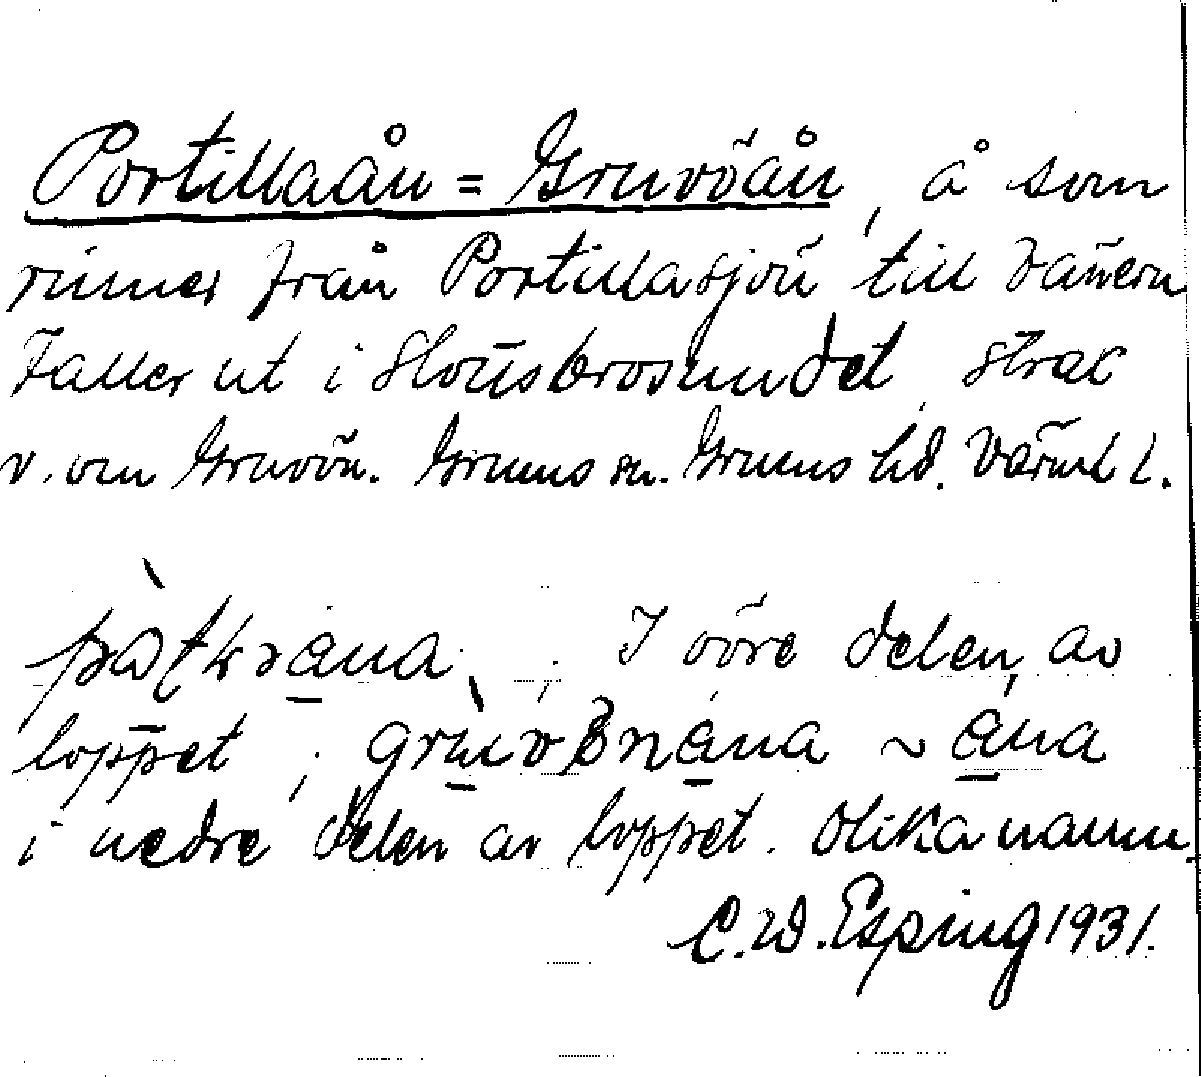 Portillaån = Gruvöån, å som
rinner från Portillasjön till Vänern
Faller ut i Slottsbrosundet strax
v. om Gruvön. Grums sn. Grums hd. Värml l.
I övre delen av
loppet; ~
i nedre delen av loppet. Olika namn.
C. W. Esping 1931.